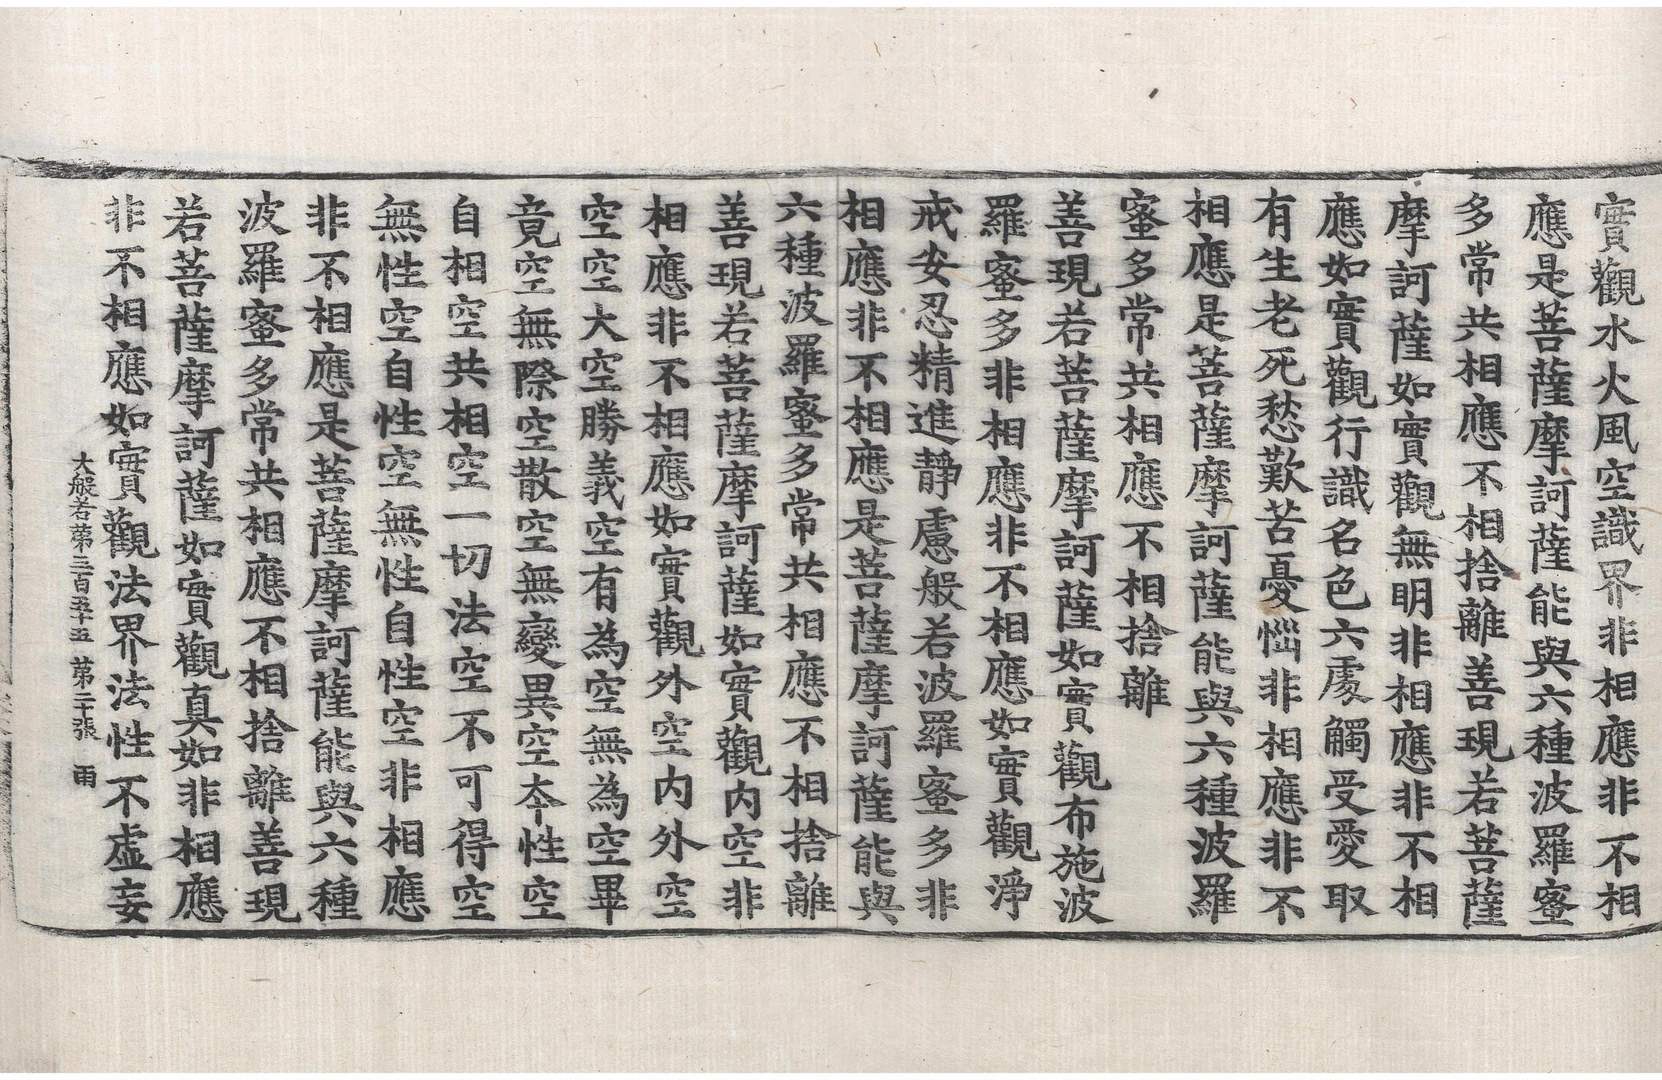 實觀水火風空識界非相應非不相
應是菩薩摩訶薩能與六種波羅蜜
多常共相應不相捨離善現若菩薩
摩訶薩如實觀無明非相應非不相
應如實觀行識名色六處觸受愛取
有生老死愁歎苦憂惱非相應非不
相應是菩薩摩訶薩能與六種波羅
蜜多常共相應不相捨離
善現若菩薩摩訶薩如實觀布施波
羅蜜多非相應非不相應如實觀淨
戒安忍精進靜慮般若波羅蜜多非
相應非不相應是菩薩摩訶薩能與
六種波羅蜜多常共相應不相捨離
善現若菩薩摩訶薩如實觀內空非
相應非不相應如實觀外空內外空
空空大空勝義空有為空無為空畢
竟空無際空散空無變異空本性空
自相空共相空一切法空不可得空
無性空自性空無性自性空非相應
非不相應是菩薩摩訶薩能與六種
波羅蜜多常共相應不相捨離善現
若菩薩摩訶薩如實觀真如非相應
非不相應如實觀法界法性不虛妄
大般若第三百五十五 第二十張 雨